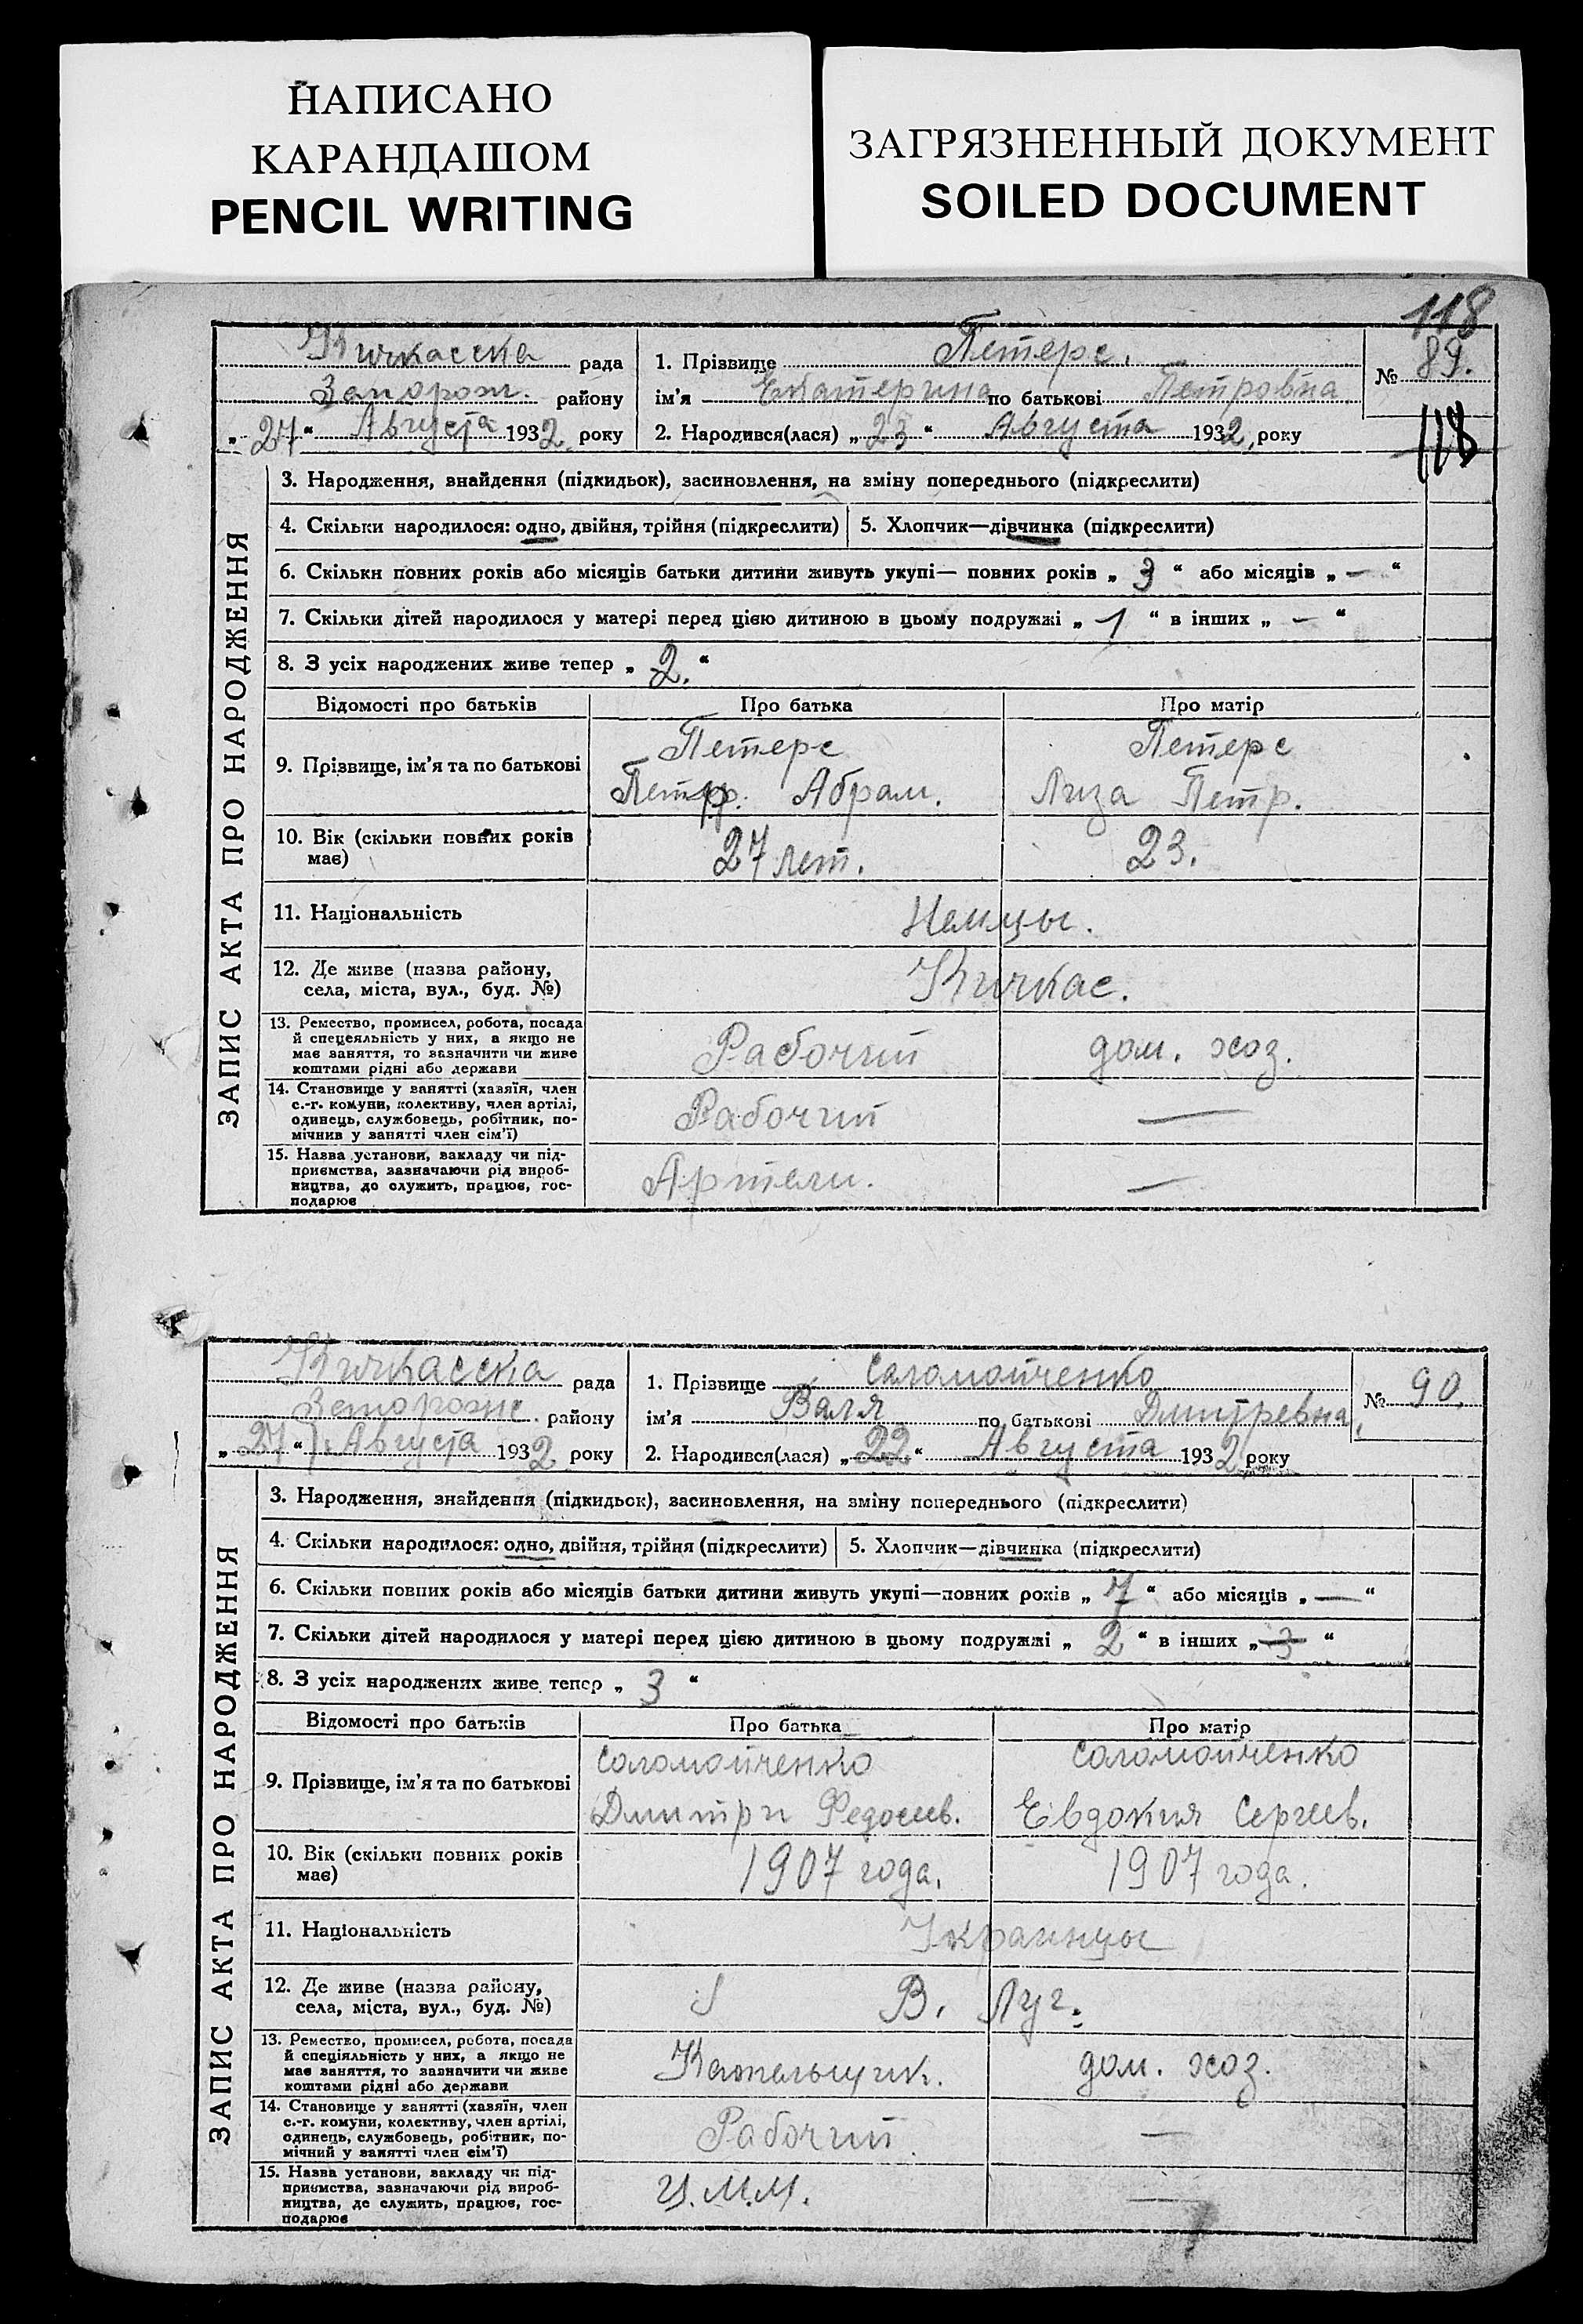 НАПИСАНО
КАРАНДАШОМ
PENCIL WRITING
ЗАГРЯЗНЕННЫЙ ДОКУМЕНТ
SOILED DOCUMENT
118
Кичкасска рада
Запорож. району
„ 27 “ Августа 1932. року
1. Прізвище Петерс.
ім'я Екатерина по батькові Петровна.
2. Народився(лася) „ 23 “ Августа 1932, року
№ 89.
118
ЗАПИС АКТА ПРО НАРОДЖЕННЯ
3. Народження, знайдення (підкидьок), засиновлення, на зміну попереднього (підкреслити)
4. Скільки народилося: одно, двійня, трійня (підкреслити)
5. Хлопчик—дівчинка (підкреслити)
6. Скільки повних років або місяців батьки дитини живуть укупі— повних років „ 3 “ або місяців „ — “
7. Скільки дітей народилося у матері перед цією дитиною в цьому подружжі „ 1 “ в інших „ — “
8. З усіх народжених живе тепер „ 2. “
Відомості про батьків Про батька Про матір
9. Прізвище, ім'я та по батькові
Петерс
Петр. Абрам.
Петерс
Лиза Петр.
10. Вік (скільки повних років
має)
27 лет. 23.
11. Національність Немцы.
12. Де живе (назва району,
села, міста, вул., буд. №)
Кичкас.
13. Ремество, промисел, робота, посада
й спецеяльність у них, а якщо не
має заняття, то вазначити чи живе
коштами рідні або держави
Рабочий дом. хоз.
14. Становище у занятті (хазяїн, член
с.-г. комуни, колективу, член артілі,
одинець, службовець, робітник, по-
мічнив у занятті член сім'ї)
Рабочий —
15. Назва установи, вакладу чи під-
приємства, зазначаючи рід вироб-
ництва, до служить, працює, гос-
подарює
Артели. —
Кичкасска рада
району
„ 27 “ Августа 1932 року
1. Прізвище Саломойченко
ім'я Валя по батькові Дмитревна,
2. Народився(лася) „ 22 “ Августа 1932 року
№ 90.
ЗАПИС АКТА ПРО НАРОДЖЕННЯ
3. Народження, знайдення (підкидьок), засиновлення, на зміну попереднього (підкреслити)
4. Скільки народилося: одно, двійня, трійня (підкреслити)
5. Хлопчик—дівчинка (підкреслити)
6. Скільки повних років або місяців батьки дитини живуть укупі—повних років „ 7 “ або місяців „ — “
7. Скільки дітей народилося у матері перед цією дитиною в цьому подружжі „ 2 “ в інших „ 3 “
8. З усіх народжених живе тепер „ 3 “
Відомості про батьків Про батька Про матір
9. Прізвище, ім'я та по батькові
Соломойченко
Дмитри Федосеев.
Соломойченко
Евдокия Сергеев.
10. Вік (скільки повних років
має)
1907 года. 1907 года.
11. Національність Украинцы
12. Де живе (назва району,
села, міста, вул., буд. №)
В. Луг.
13. Ремество, промисел, робота, посада
й спеціяльність у них, а якщо не
має заняття, то зазначити чи живе
коштами рідні або держави
дом. хоз.
14. Становище у занятті (хазяїн, член
с.-г. комуни, колективу, член артілі,
одинець, службовець, робітник, по-
мічний у занятті член сім'ї)
Рабочий —
15. Назва установи, вакладу чи під-
приємства, зазначаючи рід вироб-
ництва, де служить, працює, гос-
подарює
Ц.М.М. —